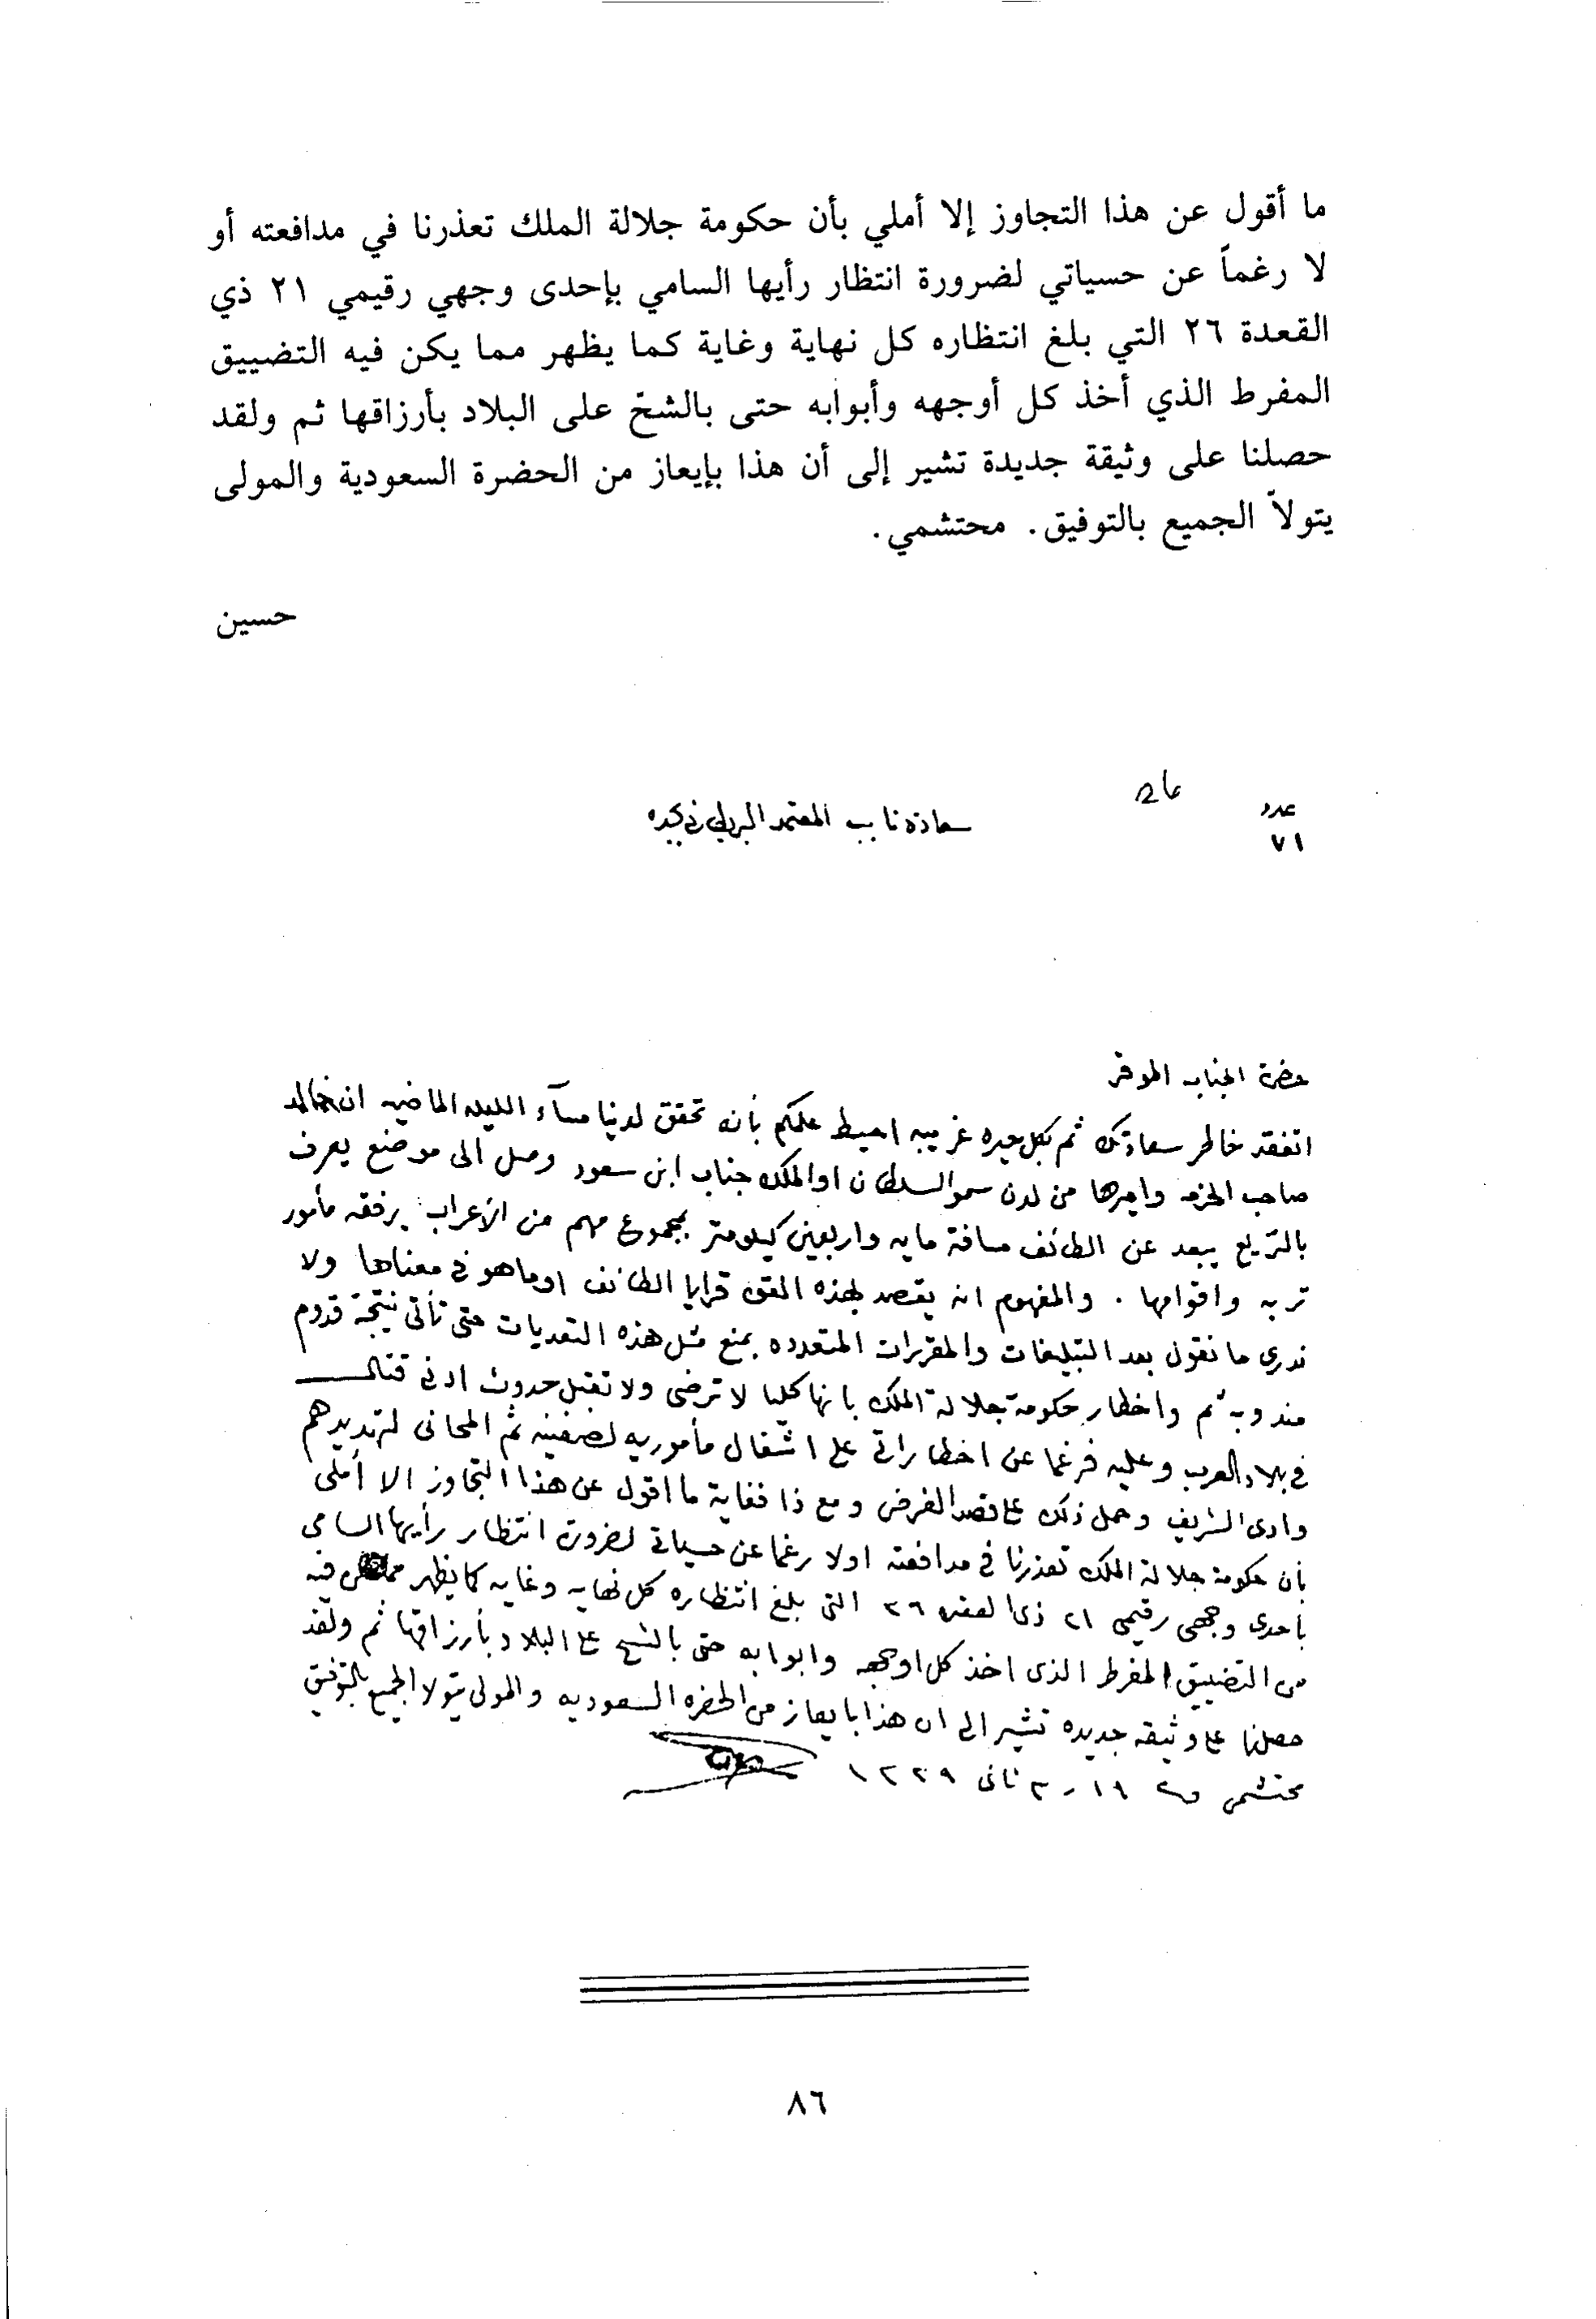 ما أقول عن هذا التجاوز إلا أملي بأن حكومة جلالة الملك تعذرنا في مدافعته أو
لا رغماً عن حسياتي لضرورة انتظار رأيها السامي بإحدى وجهي رقيمي ٢١ ذي
القعدة ٢٦ التي بلغ انتظاره كل نهاية وغاية كما يظهر مما يكن فيه التضييق
المفرط الذي أخذ كل أوجهه وأبوابه حتى بالشحّ على البلاد بأرزاقها ثم ولقد
حصلنا على وثيقة جديدة تشير إلى أن هذا بإيعاز من الحضرة السعودية والمولى
يتولاّ الجميع بالتوفيق. محتشمي.
حسين
26
عدد
٧١
سعادة نايب المعتمد البريطاني بجده
حضرة الجناب الموقر
اتفقد خاطر سعادتك ثم بكل حيره غريبه احيط علمكم بأنه تحقق لدينا مسآء الليله الماضيه ان خالد
صاحب الخرمه واميرها من لدن سمو السلطان او الملك جناب ابن سعود وصل الى موضع يعرف
يبعد عن الطائف مسافة مايه واربعين كيلومتر بمجموع مهم من الأعراب يرفقه مأمور
تربه واقوامها . والمفهوم انه يقصد بهذه القوه قرايا الطائف اوما هو في معناها ولا
ندري ما نقول بعد التبليغات والمقررات المتعدده بمنع مثل هذه التعديات حتى تأتي نتيجة قدوم
مندوبه ثم واخطار حكومة جلالة الملك بانها كليا لا ترضى ولا تقبل حدوث ادنى قتال
في بلاد العرب وعليه فرغما عن اخطاراتي على اشغال مأموريه لصفينه ثم المحاني لتهديدهم
وادي الشريف وحمل ذلك على قصد الغرض ومع ذا فغاية ما اقول عن هذا التجاوز الا أملى
بأن حكومة جلالة الملك تعذرنا في مدافعته اولا رغما عن حسياتي لضرورة انتظار رأيها السامي
بأحدى وجهى رقيمي ٢١ ذي القعده ٣٦ التي بلغ انتظاره كل نهايه وغايه كما يظهر فيه
من التضييق المفرط الذي اخذ كل اوجهه وابوابه حتى بالشح على البلاد بأرزاقها ثم ولقد
حصلنا على وثيقه جديده تشير الى ان هذا بايعاز من الحضره السعوديه والمولى يتولا الجميع بالتوفيق
محتشمي
٨٦